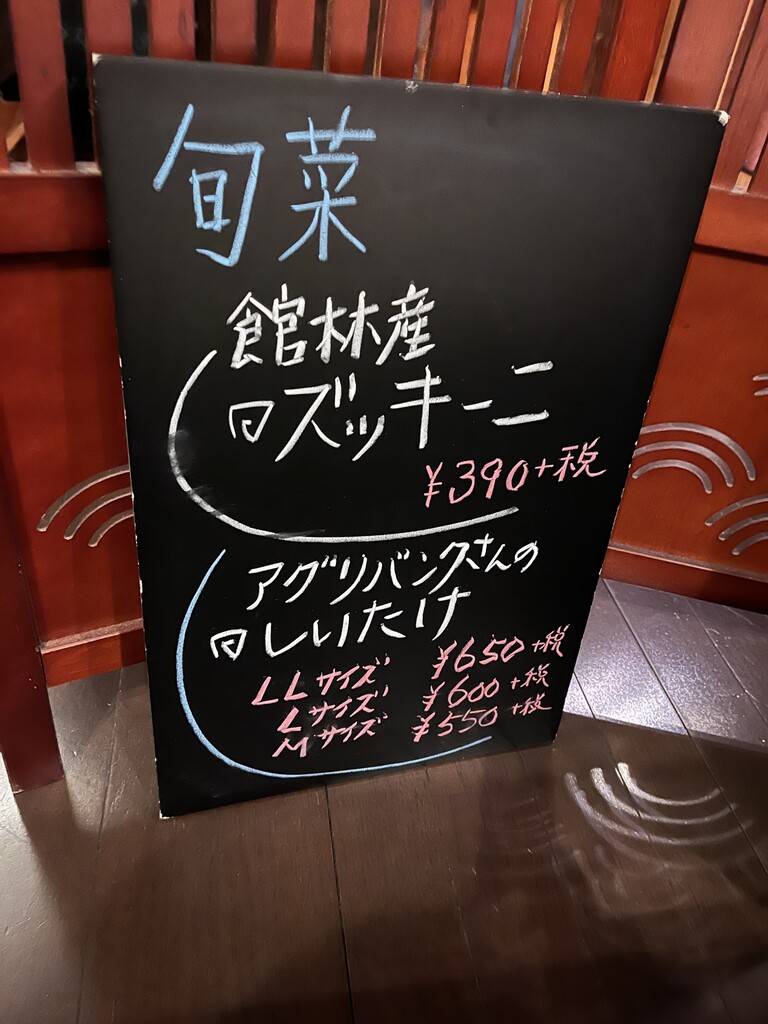 旬菜
館林産
ズッキーニ
¥390+税
アグリバンクさんの
しいたけ
LLサイズ ¥650+税
Lサイズ ¥600+税
Mサイズ ¥550+税